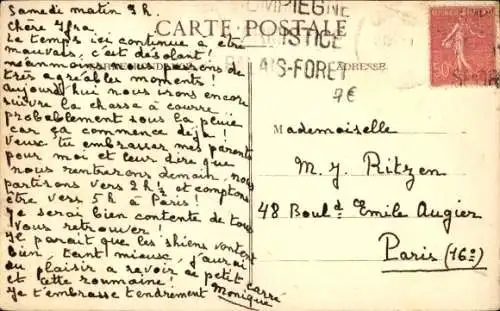 Samedi matin 9 h.
CARTE POSTALE
COMPIEGNE
ARMISTICE
S-FORET
ADRESSE
50
7€
Chère
Le temps ici continue a être
mauvais, c'est désolant!
néanmoins nous passons de
très agréables moments!
aujourd'hui nous irons encore
suivre la chasse à courre
probablement sous la pluie
car ça commence déjà!
Veux tu embrasser mes parents
pour moi et leur dire que
nous rentrerons demain, nous
partirons vers 2h½ et comptons
être vers 5 h à Paris!
Je serai bien contente de tous
vous retrouver!
Il parait que les chiens vont
bien, tant mieux, j'aurai
du plaisir a revoir ce petit carré
et cette roumaine!
Je t'embrasse tendrement Monique
Mademoiselle
M. y. Ritzen
48 Boul.d ce Emile Augier
Paris (16e)